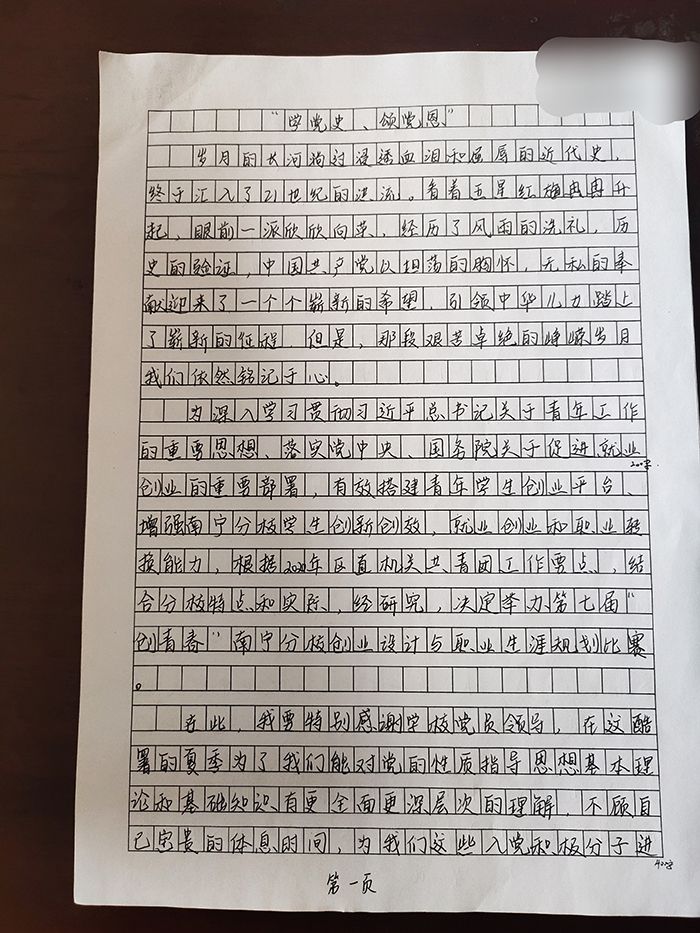 “学党史、颂党恩”
岁月的长河淌过浸透血泪和屈辱的近代史，
终于汇入了21世纪的洪流。看着五星红旗冉冉升
起，眼前一派欣欣向荣，经历了风雨的洗礼，历
史的验证，中国共产党以坦荡的胸怀，无私的奉
献迎来了一个个崭新的希望，引领中华儿女踏上
了崭新的征程．但是，那段艰苦卓绝的峥嵘岁月
我们依然铭记于心。
为深入学习贯彻习近平总书记关于青年工作
的重要思想、落实党中央、国务院关于促进就业
200字
创业的重要部署，有效搭建青年学生创业平台、
增强南宁分校学生创新创效，就业创业和职业转
换能力，根据2020年区直机关共青团工作要点，结
合分校特点和实际，经研究，决定举办第七届“
创青春”南宁分校创业设计与职业生涯规划比赛
。
在此，我要特别感谢学校党员领导，在这酷
署的夏季为了我们能对党的性质指导思想基本理
论和基础知识有更全面更深层次的理解，不顾自
己宝贵的休息时间，为我们这些入党积极分子进
400字
第一页